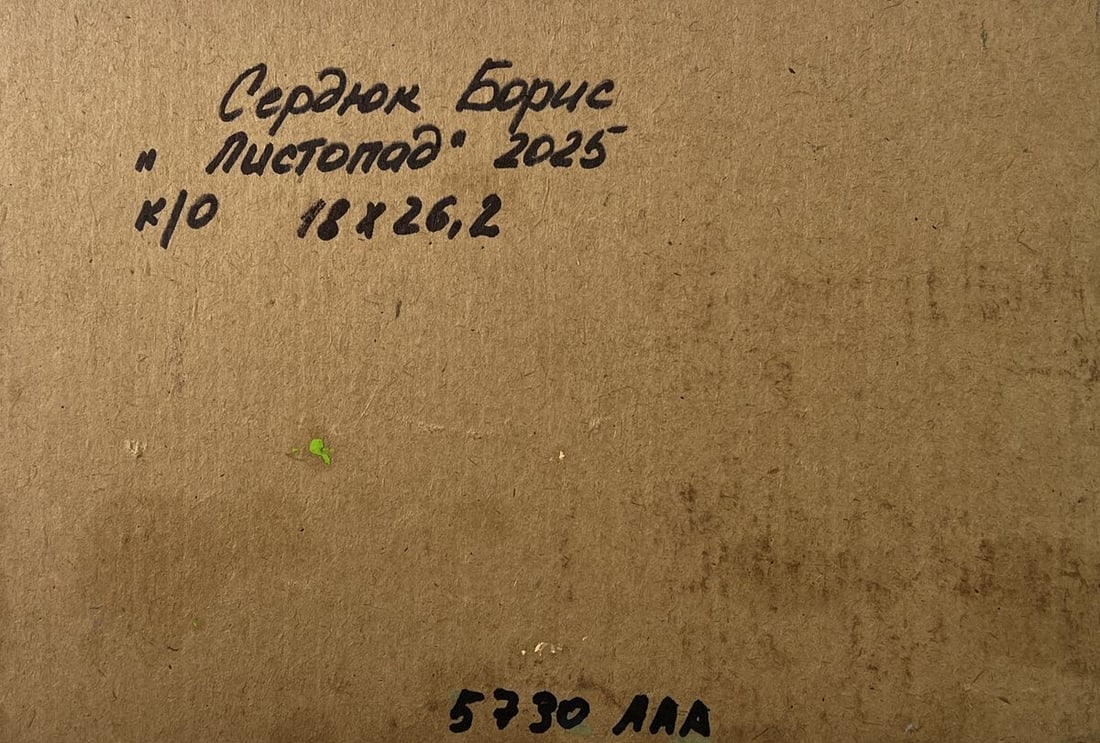 Сердюк Борис
„ Листопад" 2025
к/о 18 х 26,2
5730 ЛАА